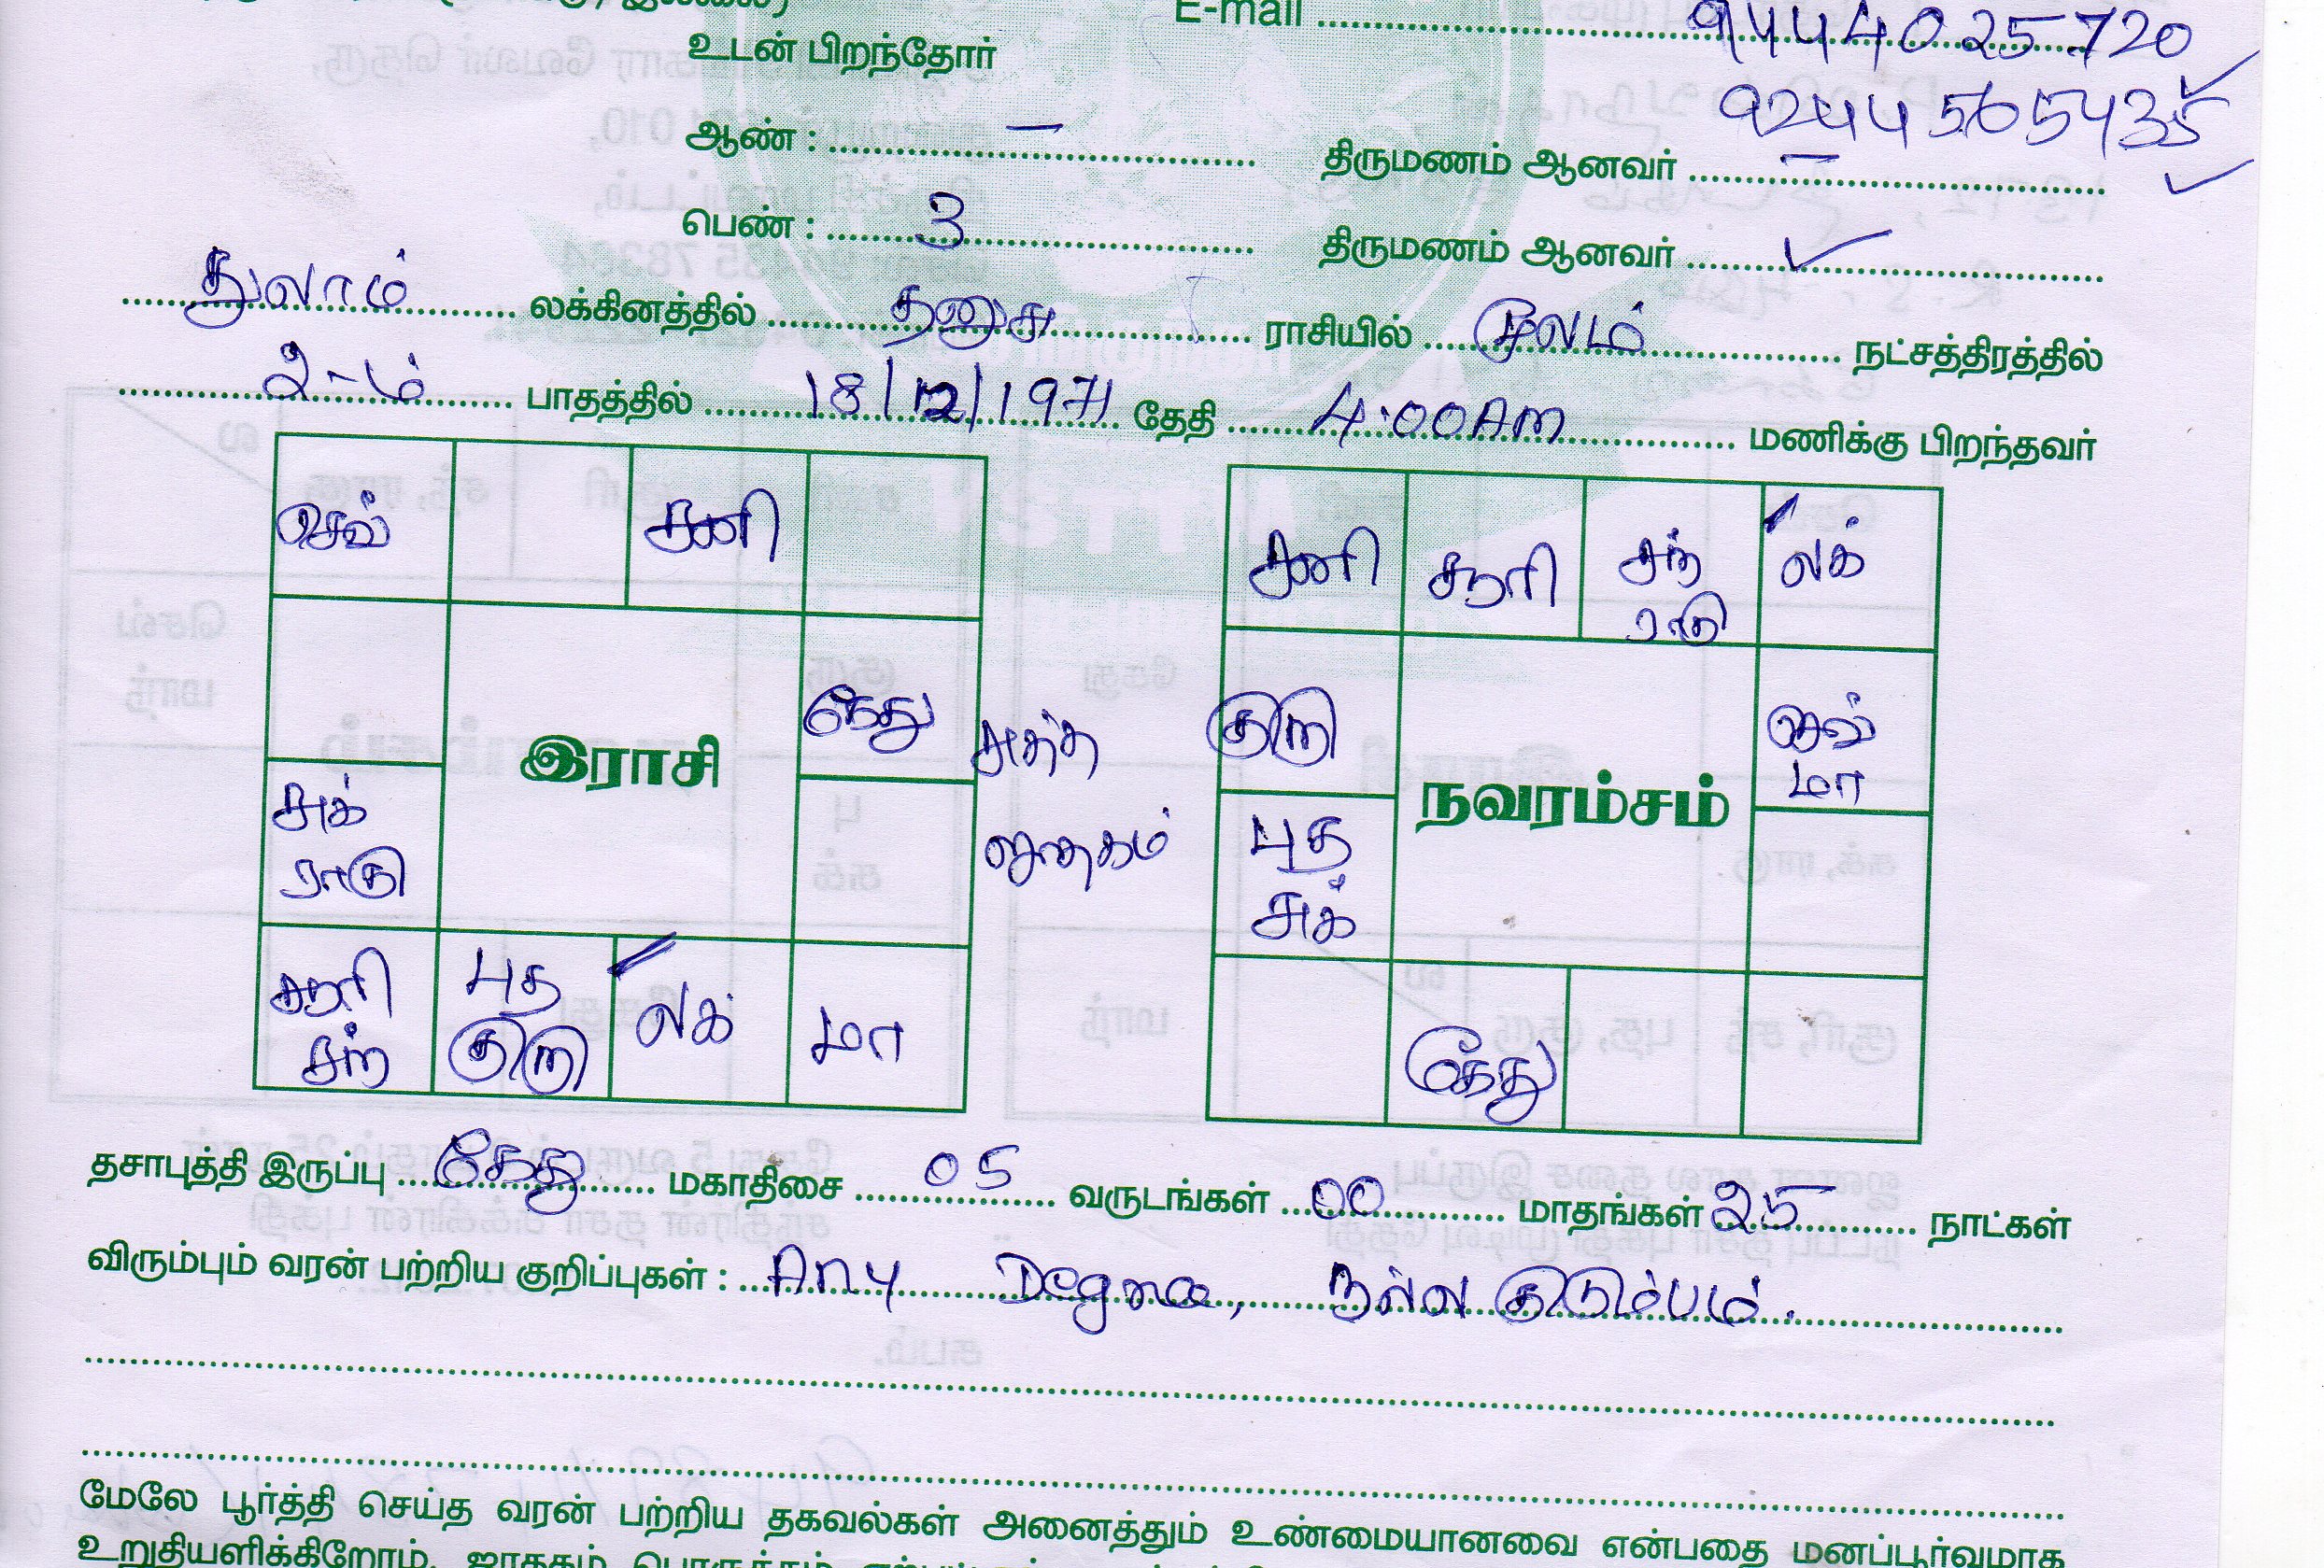 E-mail ........ 9444025720
உடன் பிறந்தோர்
9244565435
ஆண் : ........ – ........ திருமணம் ஆனவர் ........ – ........
பெண் : ........ 3 ........ திருமணம் ஆனவர் ........ ✓ ........
........ துலாம் ........ லக்கினத்தில் ........ தனுசு ........ ராசியில் ........ மூலம் ........ நட்சத்திரத்தில்
........ 2-ம் ........ பாதத்தில் ........ 18/12/1971 தேதி ........ 4.00AM ........ மணிக்கு பிறந்தவர்
செவ் சனி
கேது
இராசி
சுக்
ராகு
சூரி புத லக் மா
சந் குரு
சுத்த
ஜாதகம்
சனி சூரி சந் லக்
ராகு
குரு செவ்
மா
நவரம்சம்
புத
சுக்
கேது
தசாபுத்தி இருப்பு ........ கேது ........ மகாதிசை ........ 05 ........ வருடங்கள் ........ 00 ........ மாதங்கள் 25 ........ நாட்கள்
விரும்பும் வரன் பற்றிய குறிப்புகள் : ........ Any Degree, நல்ல குடும்பம்.
மேலே பூர்த்தி செய்த வரன் பற்றிய தகவல்கள் அனைத்தும் உண்மையானவை என்பதை மனப்பூர்வமாக
உறுதியளிக்கிறோம். ஜாதகம் பொருத்தம்